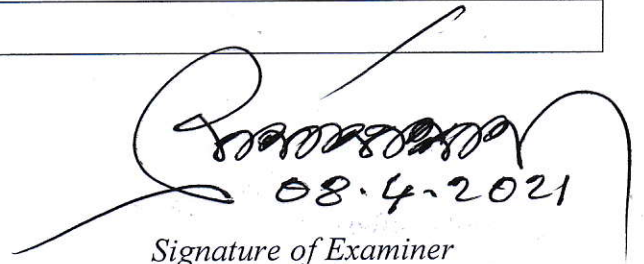 08.4.2021
Signature of Examiner